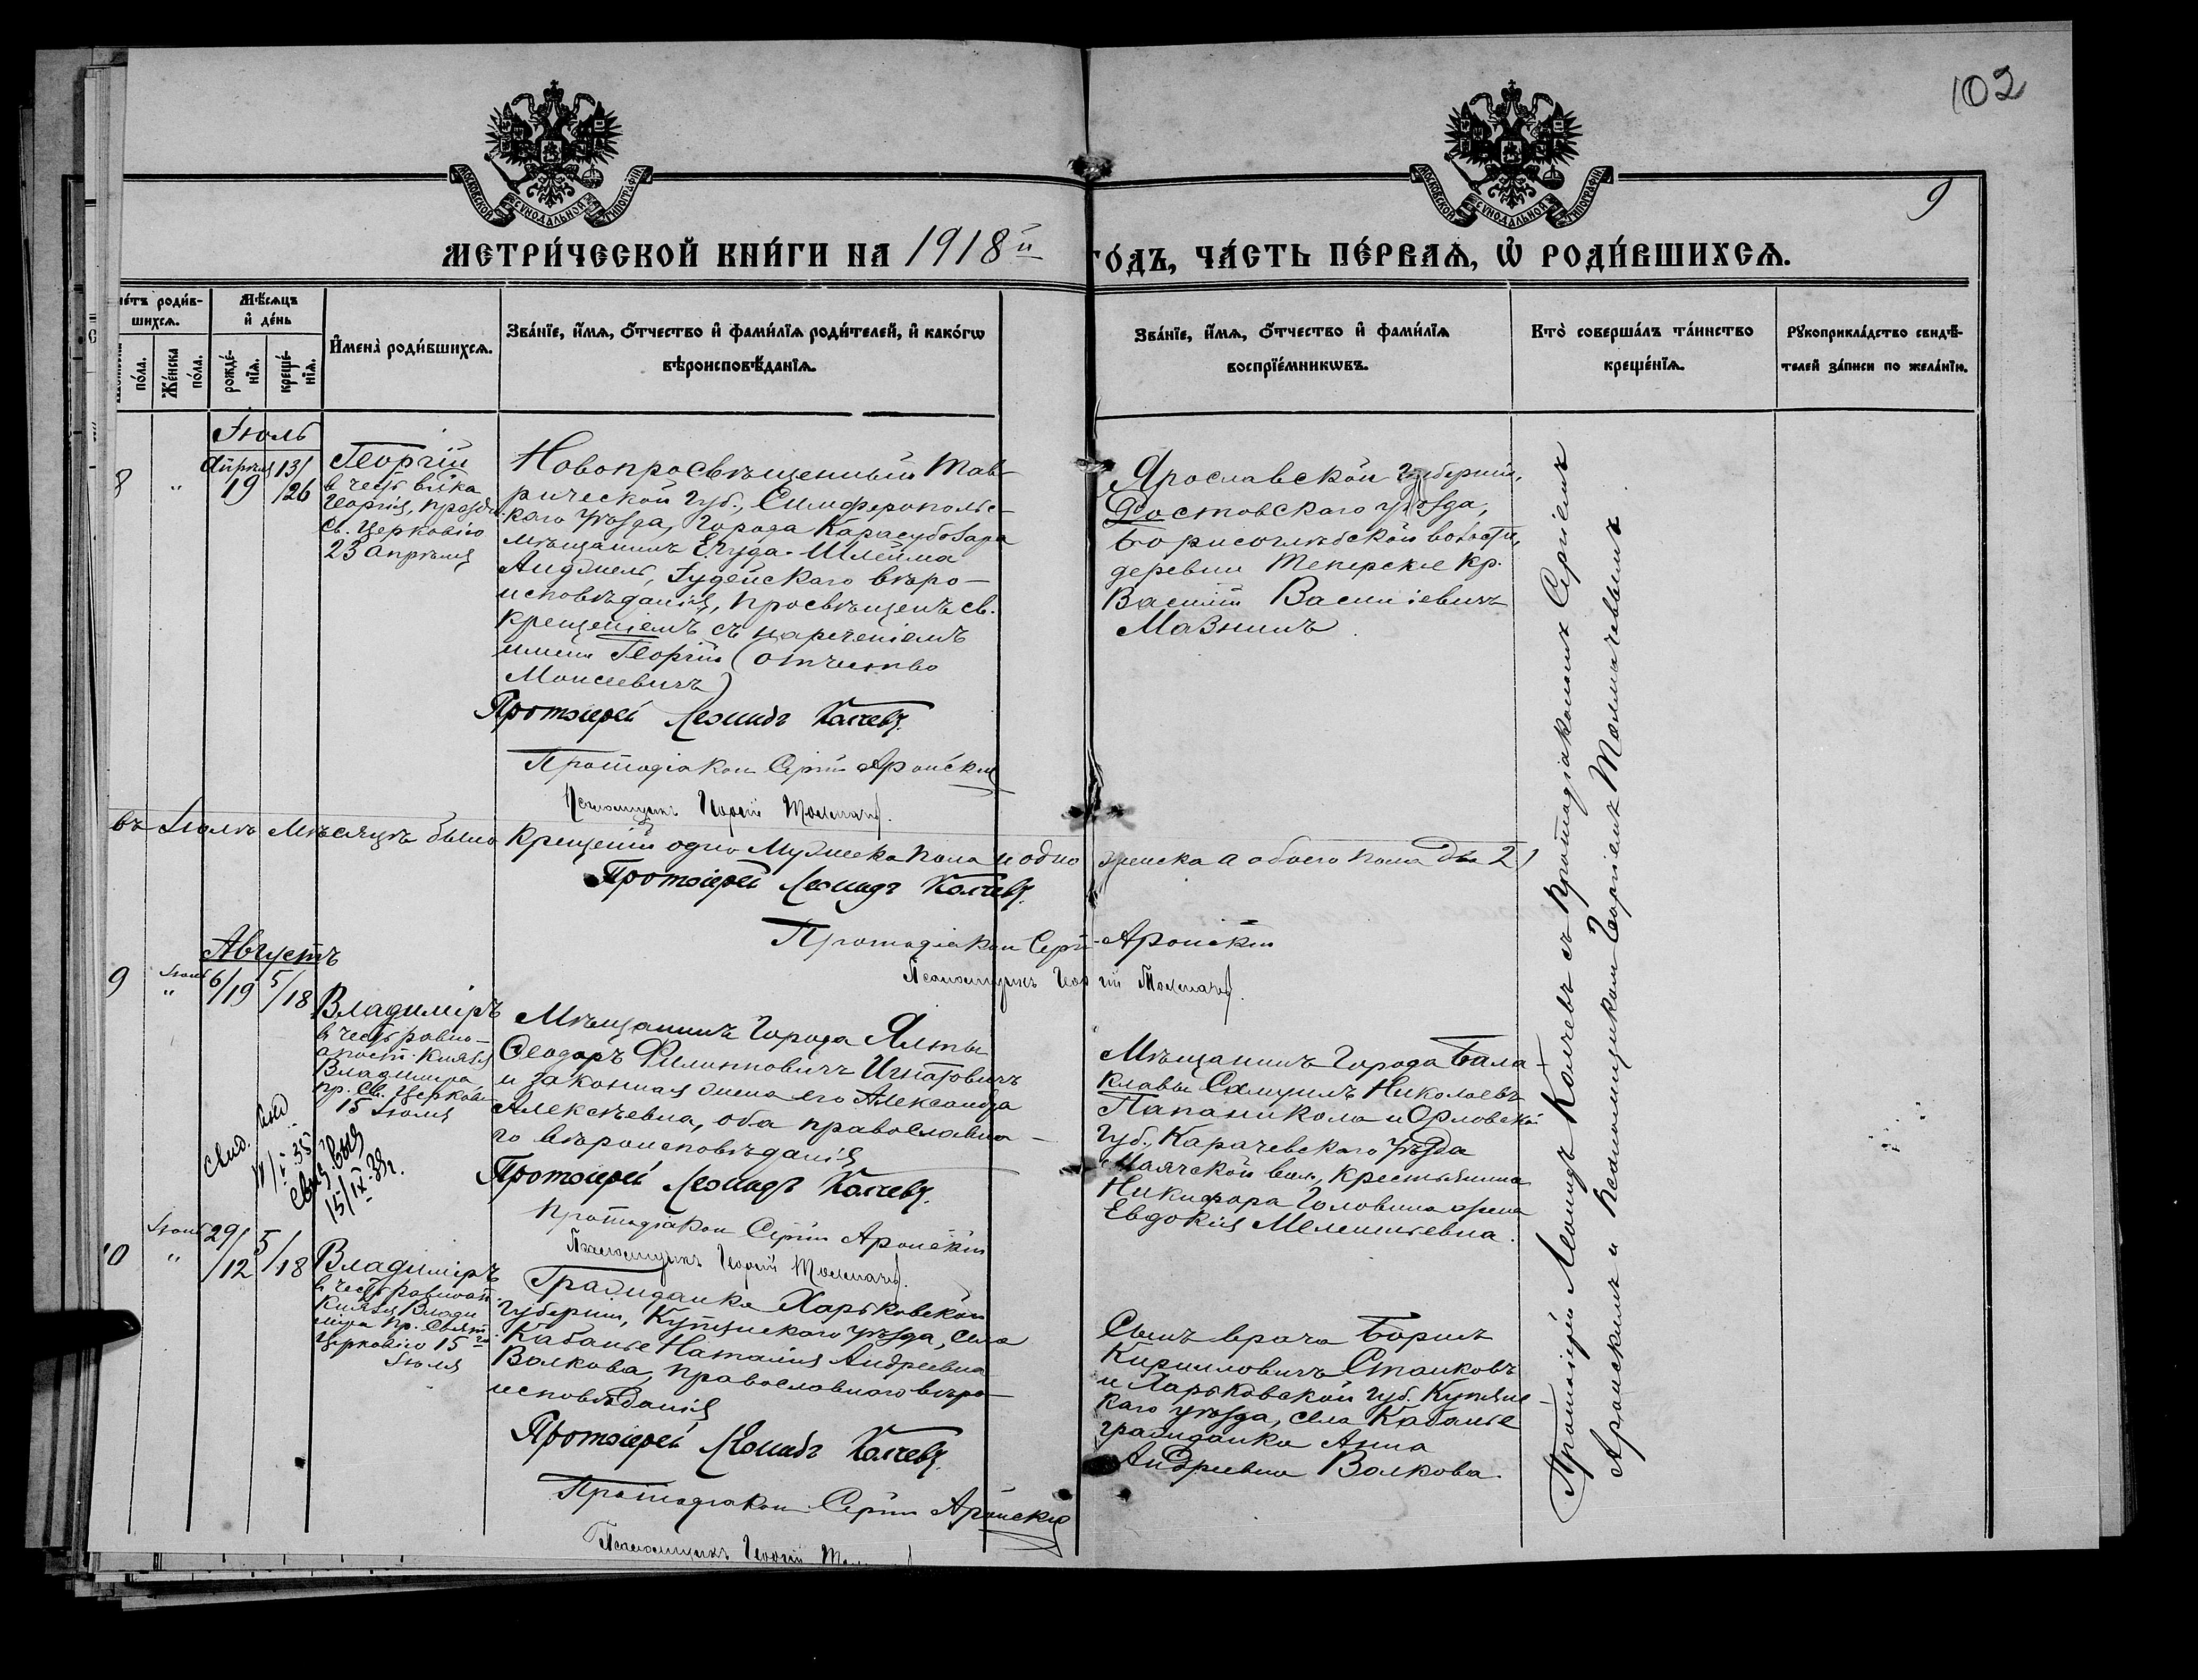 102
9
МОСКОВСКОЙ СУНОДАЛЬНОЙ ТИПОГРАФІИ
МОСКОВСКОЙ СУНОДАЛЬНОЙ ТИПОГРАФІИ
МЕТРИ́ЧЕСКОЙ КНИ́ГИ НА 1918й ГО́ДЪ, ЧА́СТЬ ПЕ́РВАѦ, Ѿ РОДИ́ВШИХСѦ.
роди́в-
шихсѧ.
по́ла.
Же́нска
по́ла.
Мѣ́сѧцъ
и҆ де́нь
рожде́-
нїѧ.
креще́-
нїѧ.
И҆мена̀ роди́вшихсѧ.
Зва́нїе, и҆́мѧ, ѻ҆́тчество и҆ фами́лїѧ роди́телей, и҆ како́гѡ
вѣроисповѣ́данїѧ.
Зва́нїе, и҆́мѧ, ѻ҆́тчество и҆ фами́лїѧ
воспрїе́мникѡвъ.
Кто̀ соверша́лъ та́инство
креще́нїѧ.
Рꙋкоприкла́дство свидѣ́-
телей за́писи по жела́нїю.
Іюль
8
"
Апрѣля
19
13/
/26
Георгій
в честь в-м-ка
Георгія, праздн.
Св. Церковію
23 апрѣля
Новопросвѣщенный Тав-
рической Губ., Симферопольс-
каго уѣзда, Города Карасубозара
мѣщанинъ Егуда-Шлейма
Анджель, Іудейскаго вѣро-
исповѣданія, просвѣщенъ св.
крещеніемъ съ нареченіемъ
имени Георгій (отчество
Моисеевичъ)
Протоіерей Леонидъ Колчевъ.
Протодіаконъ Сергій Аронскій
Псаломщикъ Георгій Толмачевъ.
Ярославской Губерніи,
Ростовскаго уѣзда,
Борисоглѣбской волости,
деревни Теперское кр.
Василій Васильевичъ
Мазнинъ.
въ Іюлѣ Мѣсяцѣ было крещеній одно Мужеска пола и одно женска а обоего пола два 2)
Протоіерей Леонидъ Колчевъ.
Протодіаконъ Сергій Аронскій
Псаломщикъ Георгій Толмачевъ.
Августъ
9
"
6/19
5/18
Владиміръ
в честь равно-
апост. Князя
Владиміра
пр. Св. Церков.
15 Іюля
Мѣщанинъ Города Ялты
Ѳеодоръ Филипповичъ Игнатовичъ
и законная жена его Александра
Алексѣевна, оба православна-
го вѣроисповѣданія
Протоіерей Леонидъ Колчевъ.
Протодіаконъ Сергій Аронскій
Псаломщикъ Георгій Толмачевъ.
Мѣщанинъ Города Бала-
клавы Самуилъ Николаевъ
Папаникола и Орловской
Губ., Карачевскаго уѣзда
вол., крестьянина
Никифора Головина жена
Евдокія Мелентьевна.
15/IX-38г.
10
"
29/
/12
5
/18
Владиміръ
в честь равноап.
Князя Влади
міра пр. Свят.
Церковію 15го
Іюля
Гражданка Харьковской
Губерніи, Купянскаго уѣзда, села
Кабанье Наталія Андреевна
Волкова, православнаго вѣро-
исповѣданія
Протоіерей Леонидъ Колчевъ.
Протодіаконъ Сергій Аронскій
Псаломщикъ Георгій
Сынъ врача Борисъ
Кирилловичъ Станковъ
и Харьковской губ. Купянс
каго уѣзда, села Кабанье
гражданка Анна
Андреевна Волкова.
Протоіерей Леонидъ Колчевъ съ протодіакономъ Сергіемъ
Аронскимъ и псаломщикомъ Георгіемъ Толмачевымъ.